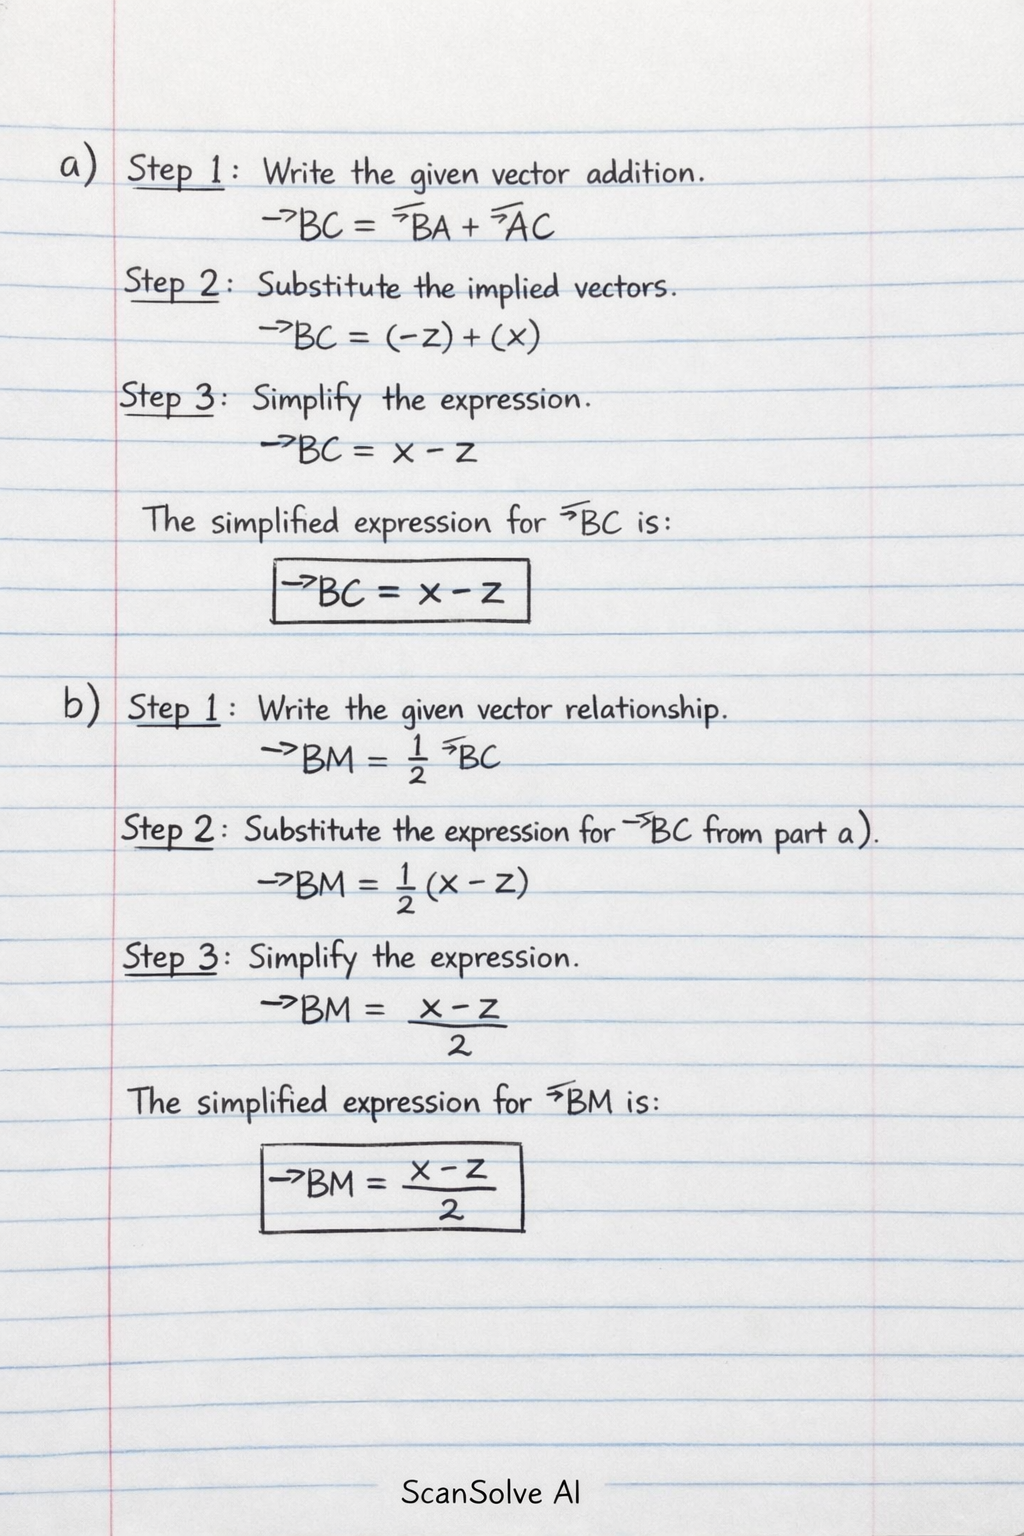 a) Step 1: Write the given vector addition.
→BC = →BA + →AC
Step 2: Substitute the implied vectors.
→BC = (-z) + (x)
Step 3: Simplify the expression.
→BC = x - z
The simplified expression for →BC is:
→BC = x - z
b) Step 1: Write the given vector relationship.
→BM = 1/2 →BC
Step 2: Substitute the expression for →BC from part a).
→BM = 1/2 (x - z)
Step 3: Simplify the expression.
→BM = x - z / 2
The simplified expression for →BM is:
→BM = x - z / 2
ScanSolve AI